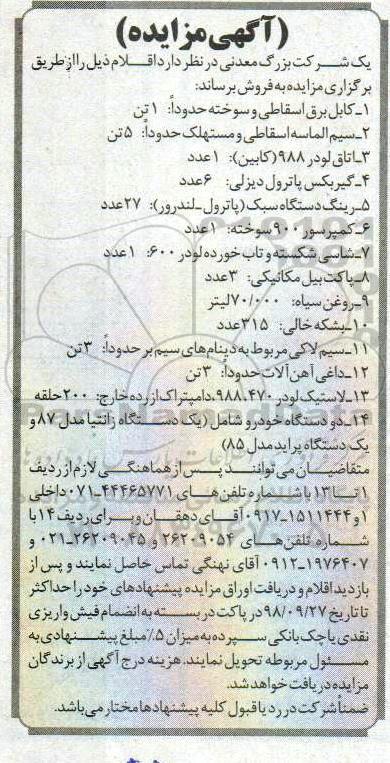 (آگهی مزایده)
یک شرکت بزرگ معدنی در نظر دارد اقلام ذیل را از طریق
برگزاری مزایده به فروش برساند:
۱ـ کابل برق اسقاطی و سوخته حدوداً: ۱ تن
۲ـ سیم الماسه اسقاطی و مستهلک حدوداً: ۵ تن
۳ـ اتاق لودر ۹۸۸ (کابین): ۱ عدد
۴ـ گیربکس پاترول دیزلی: ۶ عدد
۵ـ رینگ دستگاه سبک (پاترول ـ لندرور): ۲۷ عدد
۶ـ کمپرسور ۹۰۰ سوخته: ۱ عدد
۷ـ شاسی شکسته و تاب خورده لودر ۶۰۰: ۱ عدد
۸ـ پاکت بیل مکانیکی: ۳ عدد
۹ـ روغن سیاه: ۷۰/۰۰۰ لیتر
۱۰ـ بشکه خالی: ۳۱۵ عدد
۱۱ـ سیم لاکی مربوط به دینام های سیم بر حدوداً: ۳ تن
۱۲ـ داغی آهن آلات حدوداً: ۳ تن
۱۳ـ لاستیک لودر ۴۷۰ـ۹۸۸ـ دامپتراک از رده خارج: ۲۰۰ حلقه
۱۴ـ دو دستگاه خودرو شامل (یک دستگاه زانتیا مدل ۸۷ و
یک دستگاه پراید مدل ۸۵)
متقاضیان می توانند پس از هماهنگی لازم از ردیف
۱ تا ۱۳ با شماره تلفن های ۴۴۴۶۵۷۷۱ـ۰۷۱ داخلی
۱ و ۱۵۱۱۴۴۴ـ۰۹۱۷ آقای دهقان و برای ردیف ۱۴ با
شماره تلفن های ۲۶۲۰۹۰۵۴ و ۲۶۲۰۹۰۴۵ـ۰۲۱ و
۱۹۷۶۴۰۷ـ۰۹۱۲ آقای نهنگی تماس حاصل نمایند و پس از
بازدید اقلام و دریافت اوراق مزایده پیشنهادهای خود را حداکثر
تا تاریخ ۹۸/۰۹/۲۷ در پاکت در بسته به انضمام فیش واریزی
نقدی یا چک بانکی سپرده به میزان ۵٪ مبلغ پیشنهادی به
مسئول مربوطه تحویل نمایند. هزینه درج آگهی از برندگان
مزایده دریافت خواهد شد.
ضمناً شرکت در رد یا قبول کلیه پیشنهادها مختار می باشد.